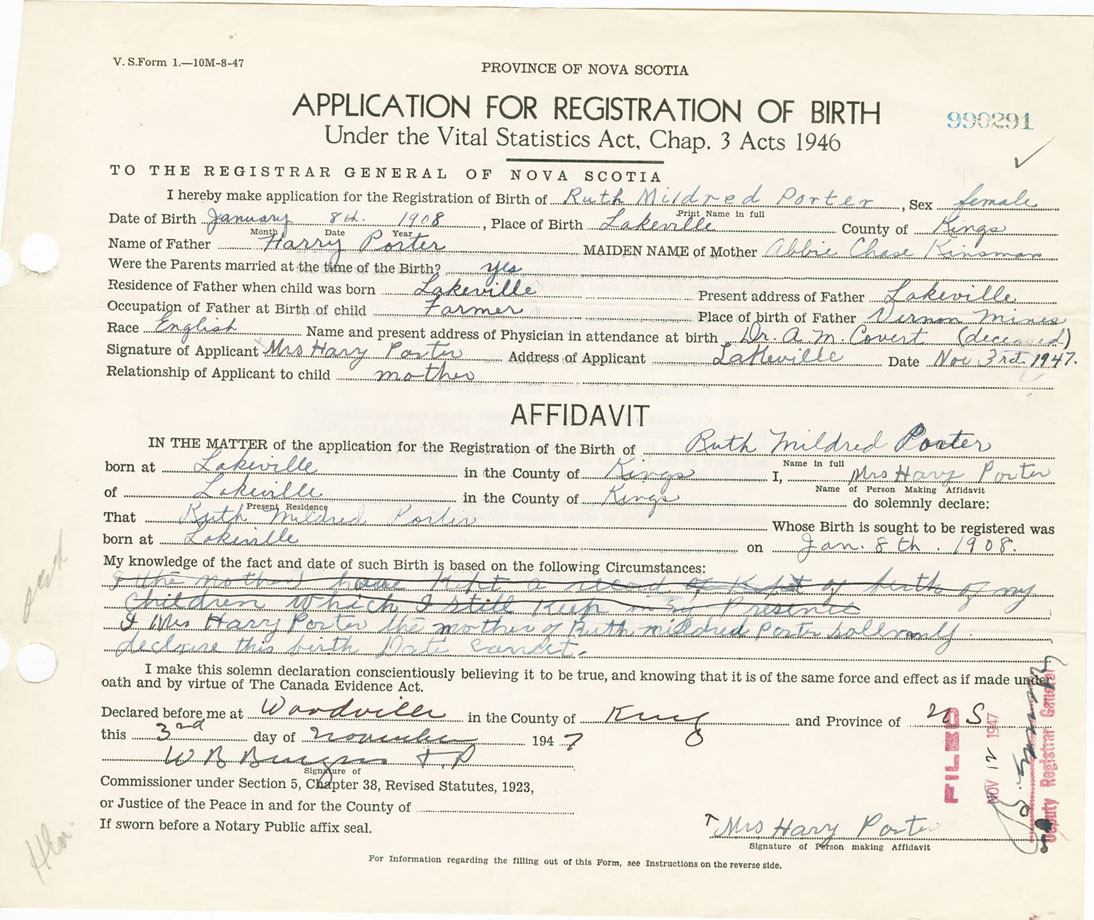 V. S.Form 1.—10M-8-47
PROVINCE OF NOVA SCOTIA
APPLICATION FOR REGISTRATION OF BIRTH
990291
Under the Vital Statistics Act, Chap. 3 Acts 1946
TO THE REGISTRAR GENERAL OF NOVA SCOTIA
I hereby make application for the Registration of Birth of Ruth Mildred Porter, Sex female
Print Name in full
Date of Birth January 8th. 1908, Place of Birth Lakeville County of Kings
Month Date Year
Name of Father Harry Porter MAIDEN NAME of Mother Abbie Chase Kinsman
Were the Parents married at the time of the Birth? yes
Residence of Father when child was born Lakeville Present address of Father Lakeville
Occupation of Father at Birth of child Farmer Place of birth of Father Vernon Mines
Race English Name and present address of Physician in attendance at birth Dr. A. M. Covert (deceased)
Signature of Applicant Mrs Harry Porter Address of Applicant Lakeville Date Nov 3rd. 1947.
Relationship of Applicant to child mother
AFFIDAVIT
IN THE MATTER of the application for the Registration of the Birth of Ruth Mildred Porter
Name in full
born at Lakeville in the County of Kings I, Mrs Harry Porter
Name of Person Making Affidavit
of Lakeville in the County of Kings do solemnly declare:
Present Residence
That Ruth Mildred Porter Whose Birth is sought to be registered was
born at Lakeville on Jan. 8th. 1908.
My knowledge of the fact and date of such Birth is based on the following Circumstances:
I the mother have Kept a record of Kept of birth of my
children which I still Keep in my Presence
I Mrs Harry Porter the mother of Ruth mildred Porter sollemnly
declare this birth Date correct.
I make this solemn declaration conscientiously believing it to be true, and knowing that it is of the same force and effect as if made under
oath and by virtue of The Canada Evidence Act.
Declared before me at Woodville in the County of Kings and Province of N S
this 3rd day of November 1947
W B J. P
Signature of
Commissioner under Section 5, Chapter 38, Revised Statutes, 1923,
or Justice of the Peace in and for the County of
If sworn before a Notary Public affix seal.
Mrs Harry Porter
Signature of Person making Affidavit
For Information regarding the filling out of this Form, see Instructions on the reverse side.
FILED
NOV 12 1947
Deputy Registrar General